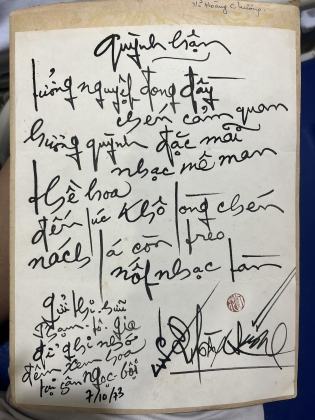 Vũ Hoàng Chương
quỳnh hận
tưởng nguyệt đong đầy
chén cảm quan
hường quỳnh đặc mãi
nhạc mê man
thề hoa
đến lúc khô lòng chén
nách lá còn treo
nốt nhạc tàn
gửi thi hữu
Phạm
để ghi nhớ
đêm xem hoa
tại sân ngọc
7/10/73
VHC